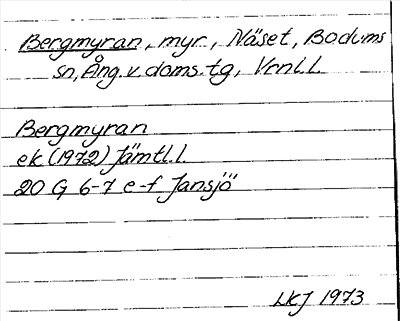 Bergmyran, myr, Näset, Bodums
sn, Ång. v. doms. tg, Vrnl. l.
Bergmyran
ek (1972) Jämtl. l.
20 G 6-7 e-f Jansjö
LKJ 1973